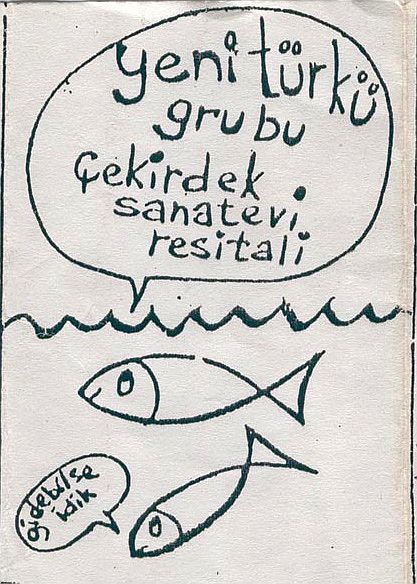 yeni türkü
grubu
Çekirdek
sanatevi
resitali
gidebilse
idik